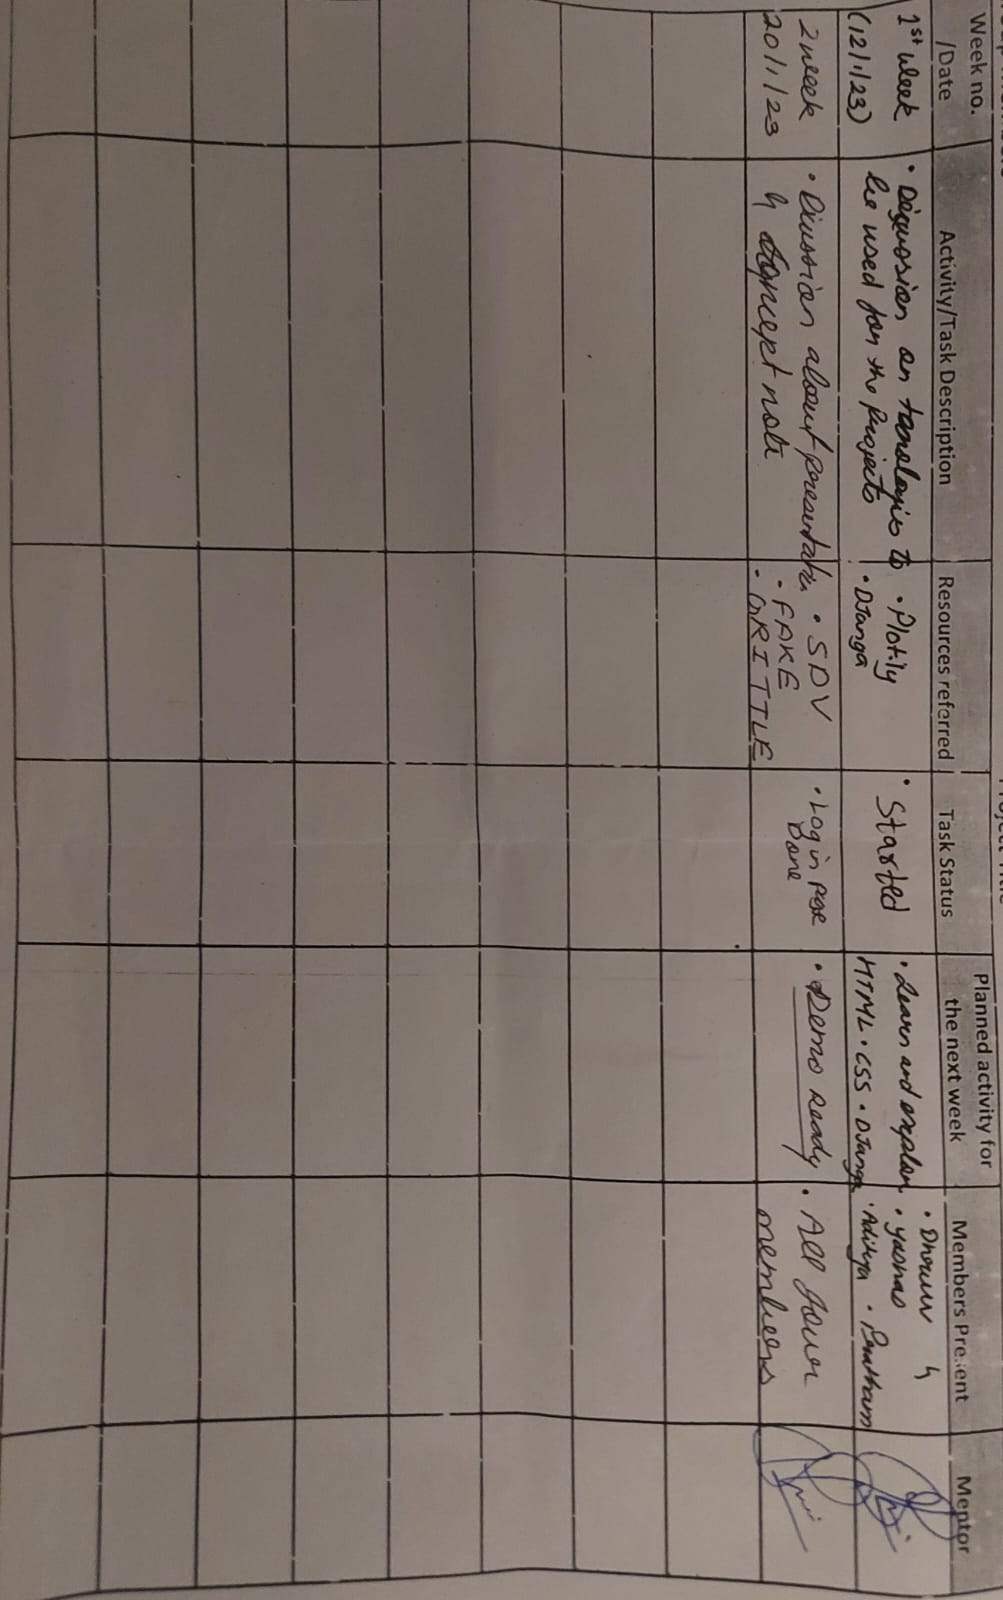 Week no.
/Date
Activity/Task Description
Resources referred
Task Status
Planned activity for
the next week
Members Present
Mentor
1st week
(12/1/23)
• Discussion on tecnologis to
be used for the projects
• Plotily
• DJanga
• Started
• Learn and explor
HTML • CSS • DJanga
• Dhruv
• Yashas &
• Aditya • Pratham
2 week
20/1/23
• Dicussion about presentatin
& concept note
• SDV
• FAKE
• GRITTLE
• Log in page
Done
• Demo Ready
• All four
members